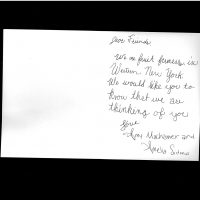 Dear Friends
We are fruit farmers in
Western New York
We would like you to
know that we are
thinking of you
Love
Amy Machamer and